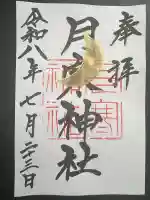 奉拝
月 神社
令和八年七月二十三日